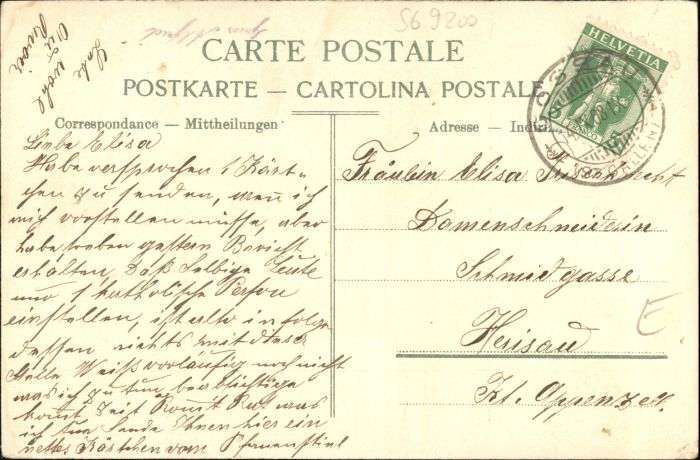 S69200
CARTE POSTALE
POSTKARTE — CARTOLINA POSTALE
HELVETIA
GOSSAU
Correspondance — Mittheilungen
Adresse — Indiri
Lebe
wohl
Liebe Elisa
Habe versprochen 1 Kärt-
chen zu senden, wen ich
mich vorstellen müsse, aber
habe soeben gestern Bericht
erhalten, Daß Selbige Leute
nur 1 katholische Person
einstellen, ist also in folge
dessen nichts mit dieser
Stelle Weiß vorläufig noch nicht
was ich zu tun beabsichtige
komt Zeit komt Rat was
ich tue Sende Ihnen hier ein
nettes Kärtchen vom Pfauenstiel
Fräulein Elisa
Damenschneiderin
Schmiedgasse
Herisau
Kt. Appenzell.
E